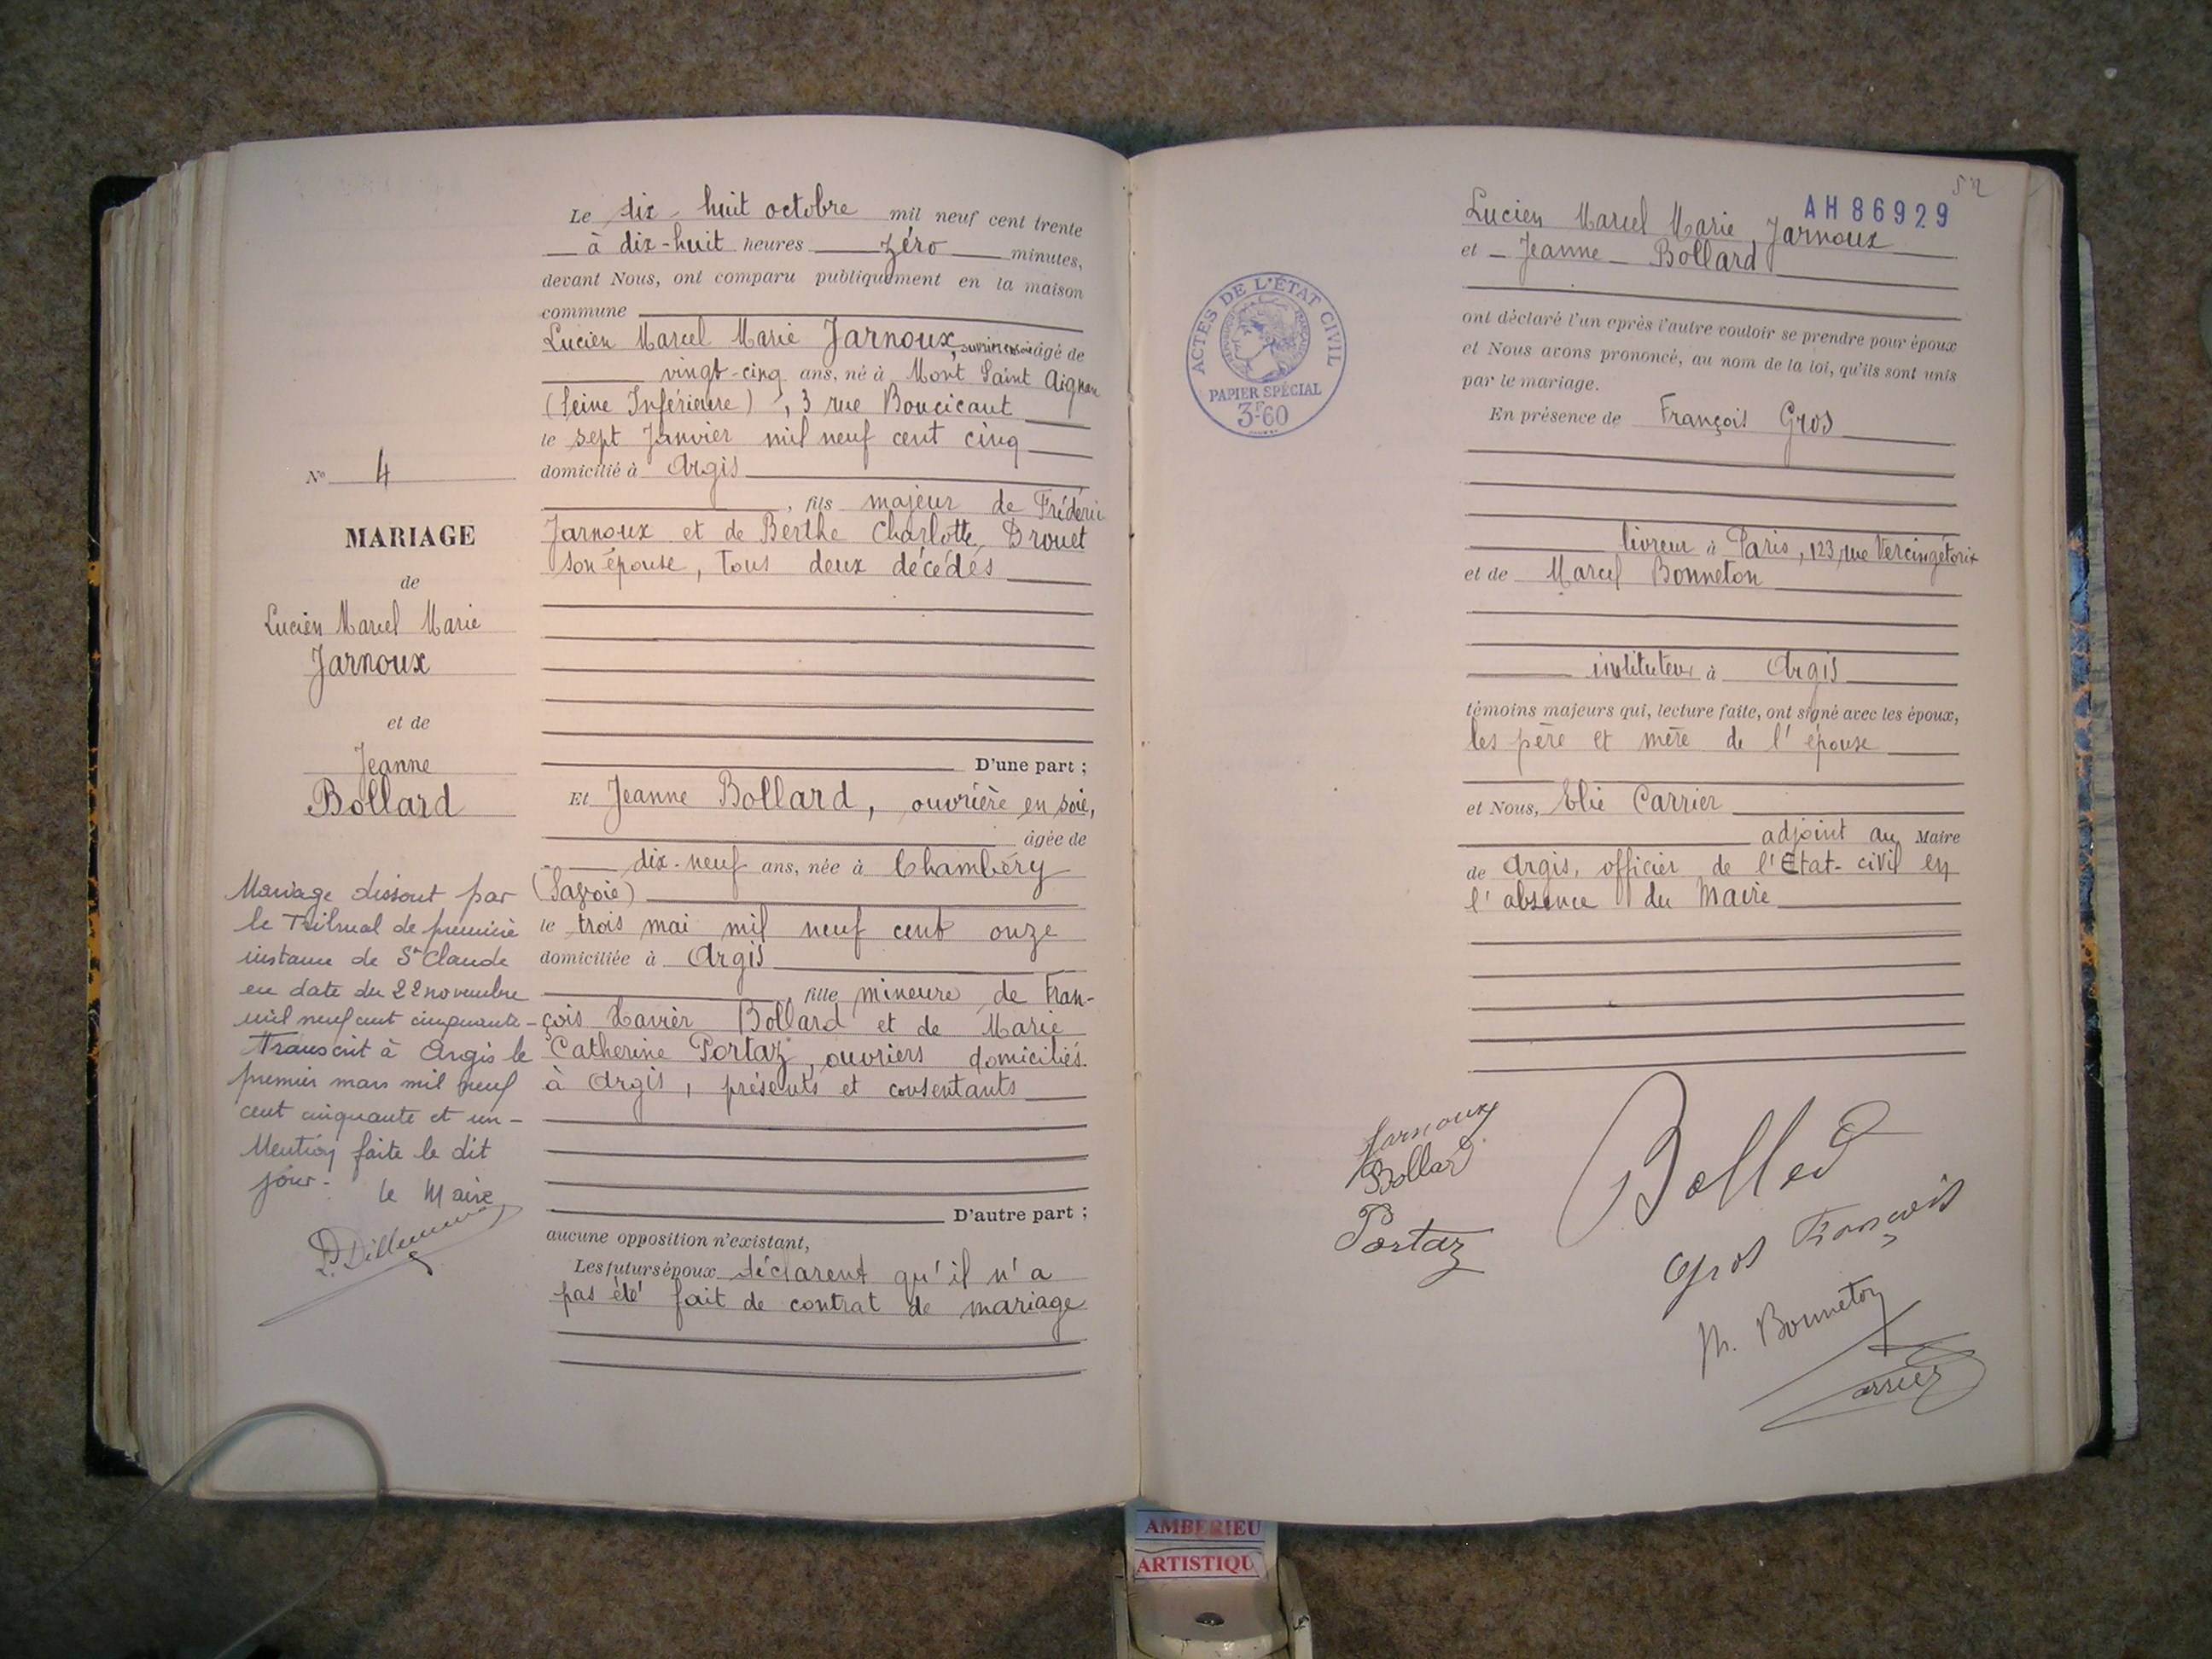 Le dix-huit octobre mil neuf cent trente
à dix-huit heures zéro minutes,
devant Nous, ont comparu publiquement en la maison
commune
Lucien Marcel Marie Jarnoux, ouvrier en soie âgé de
vingt-cinq ans, né à Mont Saint Aignan
(Seine Inférieure), 3 rue Boucicaut
le sept Janvier mil neuf cent cinq
domicilié à Argis
, fils majeur de Frédéric
Jarnoux et de Berthe Charlotte Drouet
son épouse, tous deux décédés
D'une part ;
Et Jeanne Bollard, ouvrière en soie,
âgée de
dix-neuf ans, née à Chambéry
(Savoie)
le trois mai mil neuf cent onze
domiciliée à Argis
, fille mineure de Fran-
çois Xavier Bollard et de Marie
Catherine Portaz, ouvriers domiciliés
à Argis, présents et consentants
D'autre part ;
aucune opposition n'existant,
Les futurs époux déclarent qu'il n'a
pas été fait de contrat de mariage
No 4
MARIAGE
de
Lucien Marcel Marie
Jarnoux
et de
Jeanne
Bollard
Mariage dissout par
le Tribunal de première
instance de St Claude
en date du 22 novembre
mil neuf cent cinquante -
Transcrit à Argis le
premier mars mil neuf
cent cinquante et un -
Mention faite le dit
jour - Le Maire
52
AH 86929
Lucien Marcel Marie Jarnoux
et Jeanne Bollard
ACTES DE L'ÉTAT CIVIL
RÉPUBLIQUE FRANÇAISE
PAPIER SPÉCIAL
3F60
ont déclaré l'un après l'autre vouloir se prendre pour époux
et Nous avons prononcé, au nom de la loi, qu'ils sont unis
par le mariage.
En présence de François Gros
livreur à Paris, 123, rue Vercingétorix
et de Marcel Bonneton
instituteur à Argis
témoins majeurs qui, lecture faite, ont signé avec les époux,
les père et mère de l'épouse
et Nous, Elie Carrier
adjoint au Maire
de Argis, officier de l'Etat-civil en
l'absence du Maire
Jarnoux
Bollard
Portaz
Bollard
Gros François
M. Bonneton
Carrier
AMBERIEU
ARTISTIQU